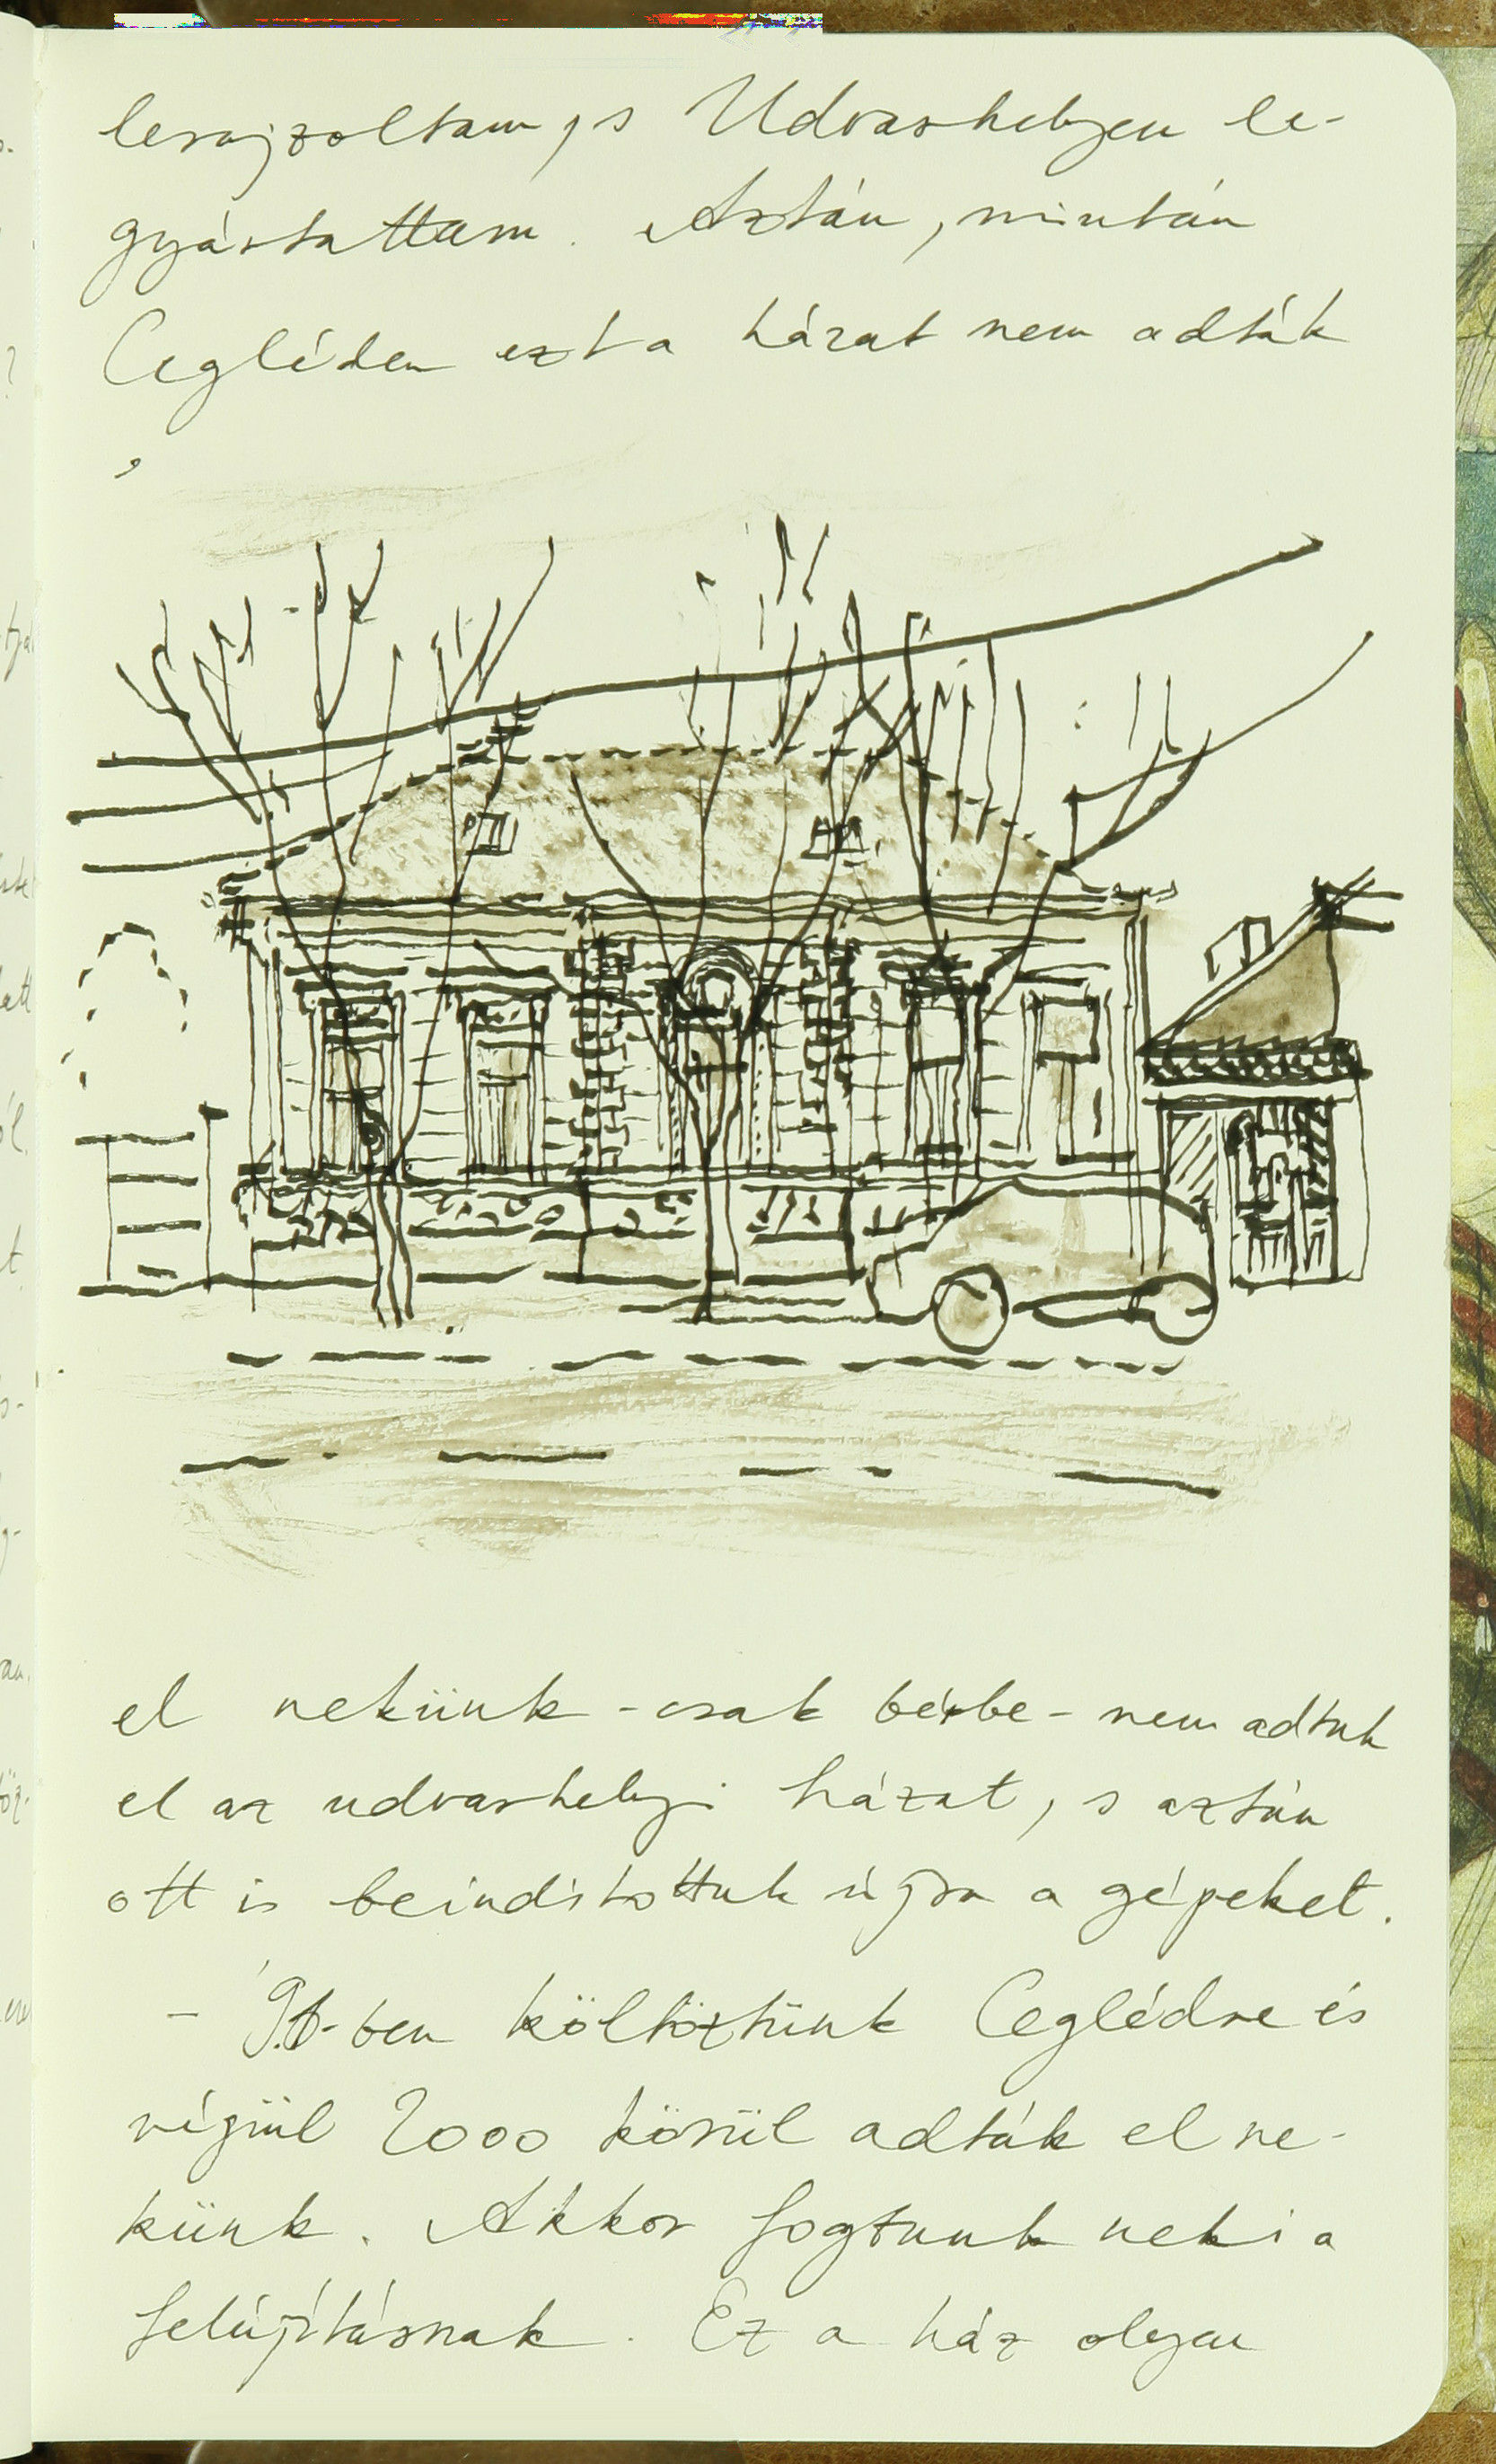 lerajzoltam, s Udvarhelyen le-
gyártattam. Aztán, miután
Cegléden ezt a házat nem adták
el nekünk - csak bérbe - nem adtuk
el az udvarhelyi házat, s aztán
ott is beindítottuk újra a gépeket.
-ben költöztünk Ceglédre és
végül 2000 körül adták el ne-
künk. Akkor fogtunk neki a
felújításnak. Ez a ház olyan